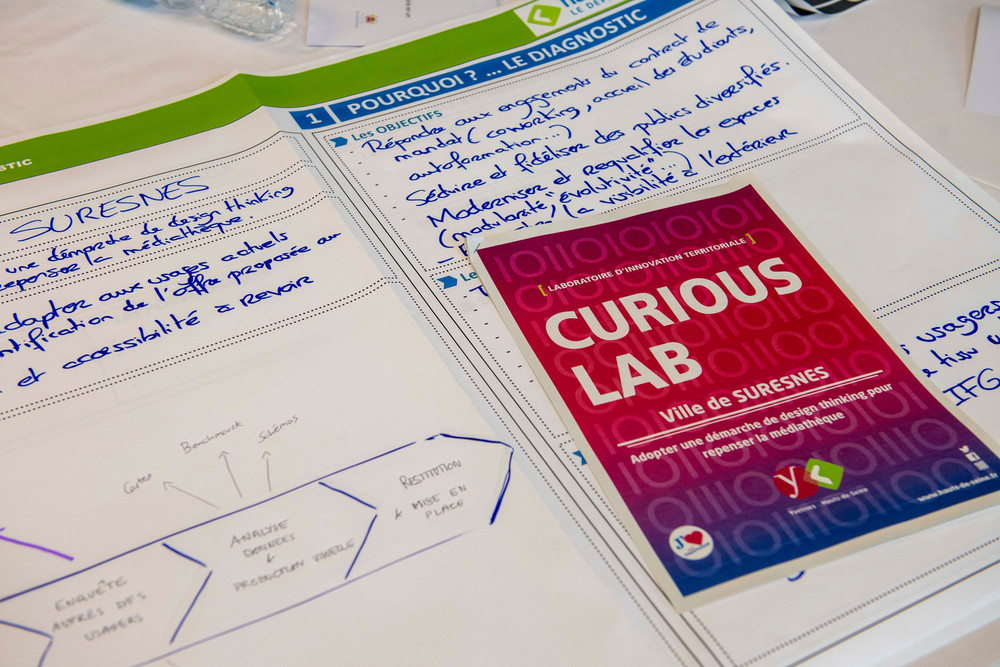 LE DÉF
STIC
1 POURQUOI ? ... LE DIAGNOSTIC
Les OBJECTIFS
Répondre aux engagements du contrat de
mandat (coworking, accueil des étudiants,
autoformation...)
Séduire et fidéliser des publics diversifiés.
Moderniser et requalifier les espaces
(modularité "évolutivité")
/ la visibilité à l'extérieur
SURESNES
une démarche de design thinking
repenser la médiathèque
adapter aux usages actuels
de l'offre proposée au
et accessibilité à revoir
Le
usagers
IFG
Cartes
Benchmark
Schémas
ENQUÊTE
AUPRÈS DES
USAGERS
ANALYSE
DONNÉES
&
PRODUCTION VISUELLE
RESTITUTION
& MISE EN
PLACE
[ LABORATOIRE D'INNOVATION TERRITORIALE ]
CURIOUS
LAB
Ville de SURESNES
Adopter une démarche de design thinking pour
repenser la médiathèque
Yvelines Hauts-de-Seine
www.hauts-de-seine.fr